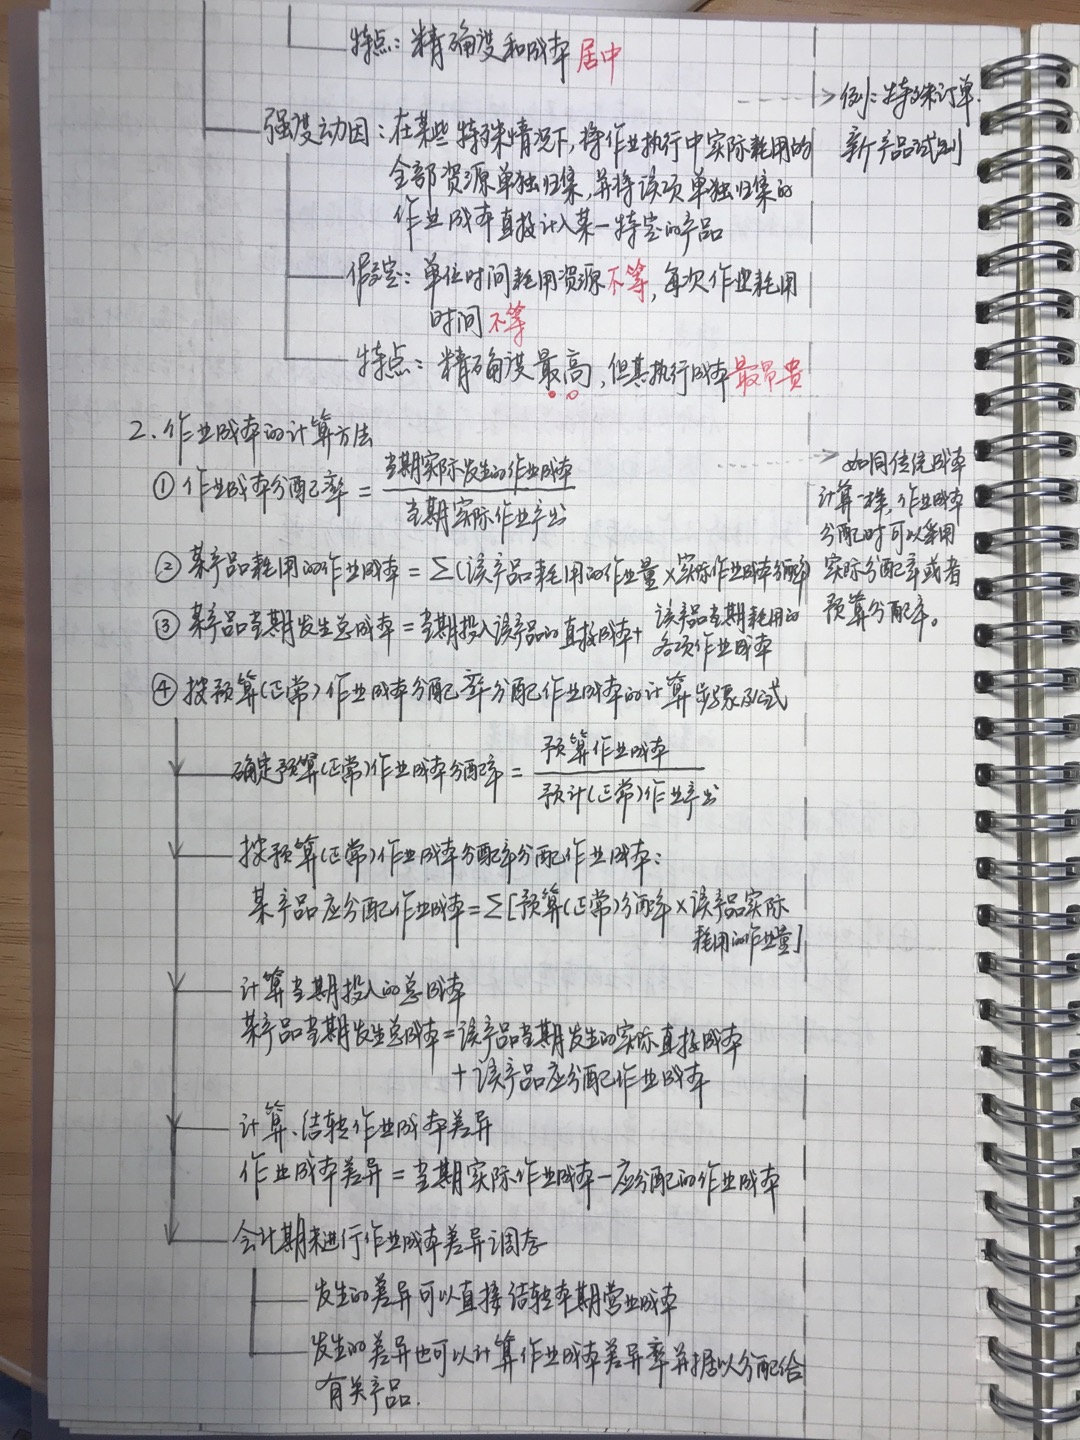 特点：精确度和成本居中
强度动因：在某些特殊情况下，将作业执行中实际耗用的
全部资源单独归集，并将该项单独归集的
作业成本直接计入某一特定的产品
例：特殊订单．
新产品试制
假定：单位时间耗用资源不等，每次作业耗用
时间不等
特点：精确度最高，但其执行成本最昂贵
2. 作业成本的计算方法
① 作业成本分配率 = 当期实际发生的作业成本
当期实际作业产出
② 某产品耗用的作业成本 = Σ(该产品耗用的作业量×实际作业成本分配率)
③ 某产品当期发生总成本 = 当期投入该产品的直接成本+ 该产品当期耗用的
各项作业成本
如同传统成本
计算一样，作业成本
分配时可以采用
实际分配率或者
预算分配率。
④ 按预算(正常)作业成本分配率分配作业成本的计算步骤及公式
确定预算(正常)作业成本分配率 = 预算作业成本
预计(正常)作业产出
按预算(正常)作业成本分配率分配作业成本：
某产品应分配作业成本=Σ[预算(正常)分配率×该产品实际
耗用的作业量]
计算当期投入的总成本
某产品当期发生总成本=该产品当期发生的实际直接成本
+该产品应分配作业成本
计算、结转作业成本差异
作业成本差异 = 当期实际作业成本－应分配的作业成本
会计期末进行作业成本差异调整
发生的差异可以直接结转本期营业成本
发生的差异也可以计算作业成本差异率并据以分配给
有关产品．